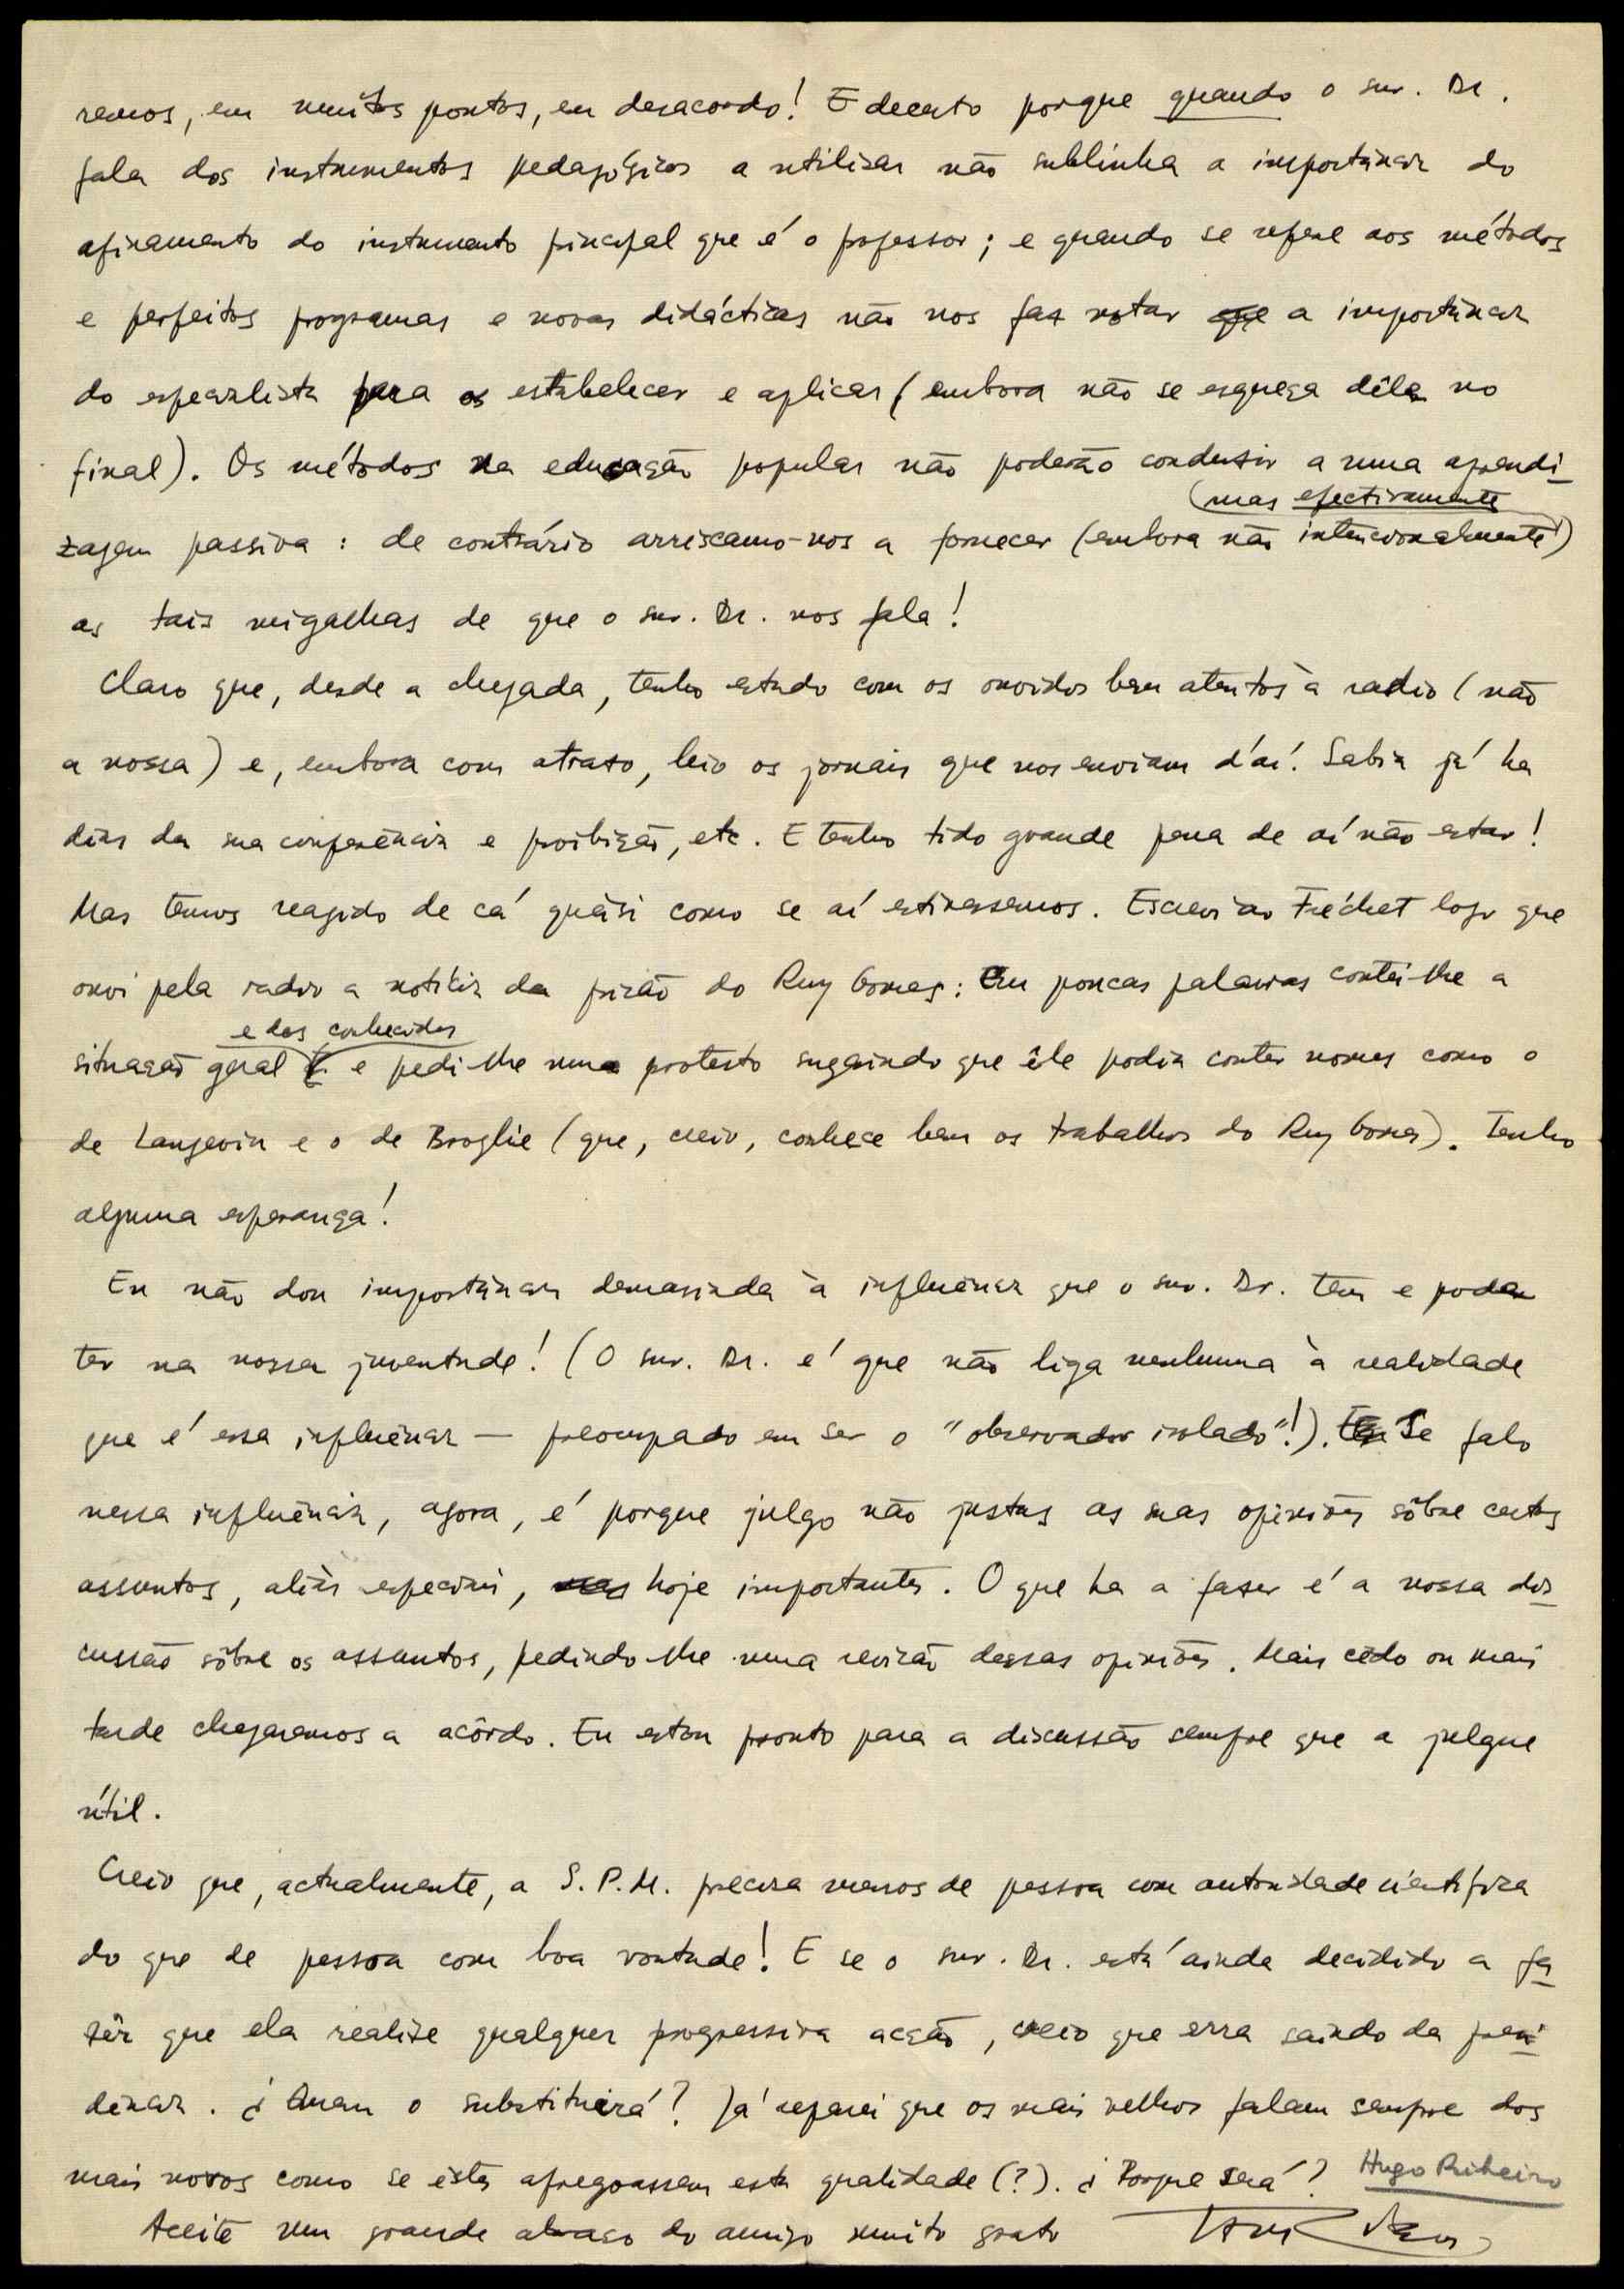 remos, em muitos pontos, em desacordo! E decerto porque quando o snr. Dr.
fala dos instrumentos pedagógicos a utilisar não sublinha a importância do
afinamento do instrumento principal que é o professor; e quando se refere aos métodos
e perfeitos programas e novas didácticas não nos faz notar a importância
do especialista para os estabelecer e aplicar (embora não se esqueça dêle no
final). Os métodos na educação popular não poderão conduzir a uma aprendi-
(mas efectivamente
zagem passiva: de contrário arriscamo-nos a fornecer (embora não intencionalmente)
as tais migalhas de que o snr. Dr. nos fala!
Claro que, desde a chegada, tenho estado com os ouvidos bem atentos à radio (não
a nossa) e, embora com atraso, leio os jornais que nos enviam d'aí. Sabia já ha
dias da sua conferência e proibição, etc. E tenho tido grande pena de aí não estar!
Mas temos reagido de cá quási como se aí estivessemos. Escrevi ao Fréchet logo que
ouvi pela radio a notícia da prisão do Ruy Gomes: Em poucas palavras contei-lhe a
e dos conhecidos
situação geral e pedi-lhe um protesto sugerindo que êle podia conter nomes como o
de Langevin e o de Broglie (que, creio, conhece bem os trabalhos do Ruy Gomes). Tenho
alguma esperança!
Eu não dou importância demasiada à influência que o snr. Dr. tem e poderá
ter na nossa juventude! (O snr. Dr. é que não liga nenhuma à realidade
que é essa influência — preocupado em ser o "observador isolado"!). Se falo
nessa influência, agora, é porque julgo não justas as suas opiniões sôbre certos
assuntos, aliás especiais, hoje importantes. O que ha a fazer é a nossa dis-
cussão sôbre os assuntos, pedindo-lhe uma revisão dessas opiniões. Mais cêdo ou mais
tarde chegaremos a acôrdo. Eu estou pronto para a discussão sempre que a julgue
útil.
Creio que, actualmente, a S.P.M. precisa menos de pessoa com autoridade científica
do que de pessoa com boa vontade! E se o snr. Dr. está ainda decidido a fa-
zêr que ela realize qualquer progressiva acção, creio que erra saindo da presi-
dência. ¿Quem o substituirá? Já reparei que os mais velhos falam sempre dos
mais novos como se êstes apregoassem esta qualidade (?). ¿Porque será? Hugo Ribeiro
Aceite um grande abraço do amigo muito grato